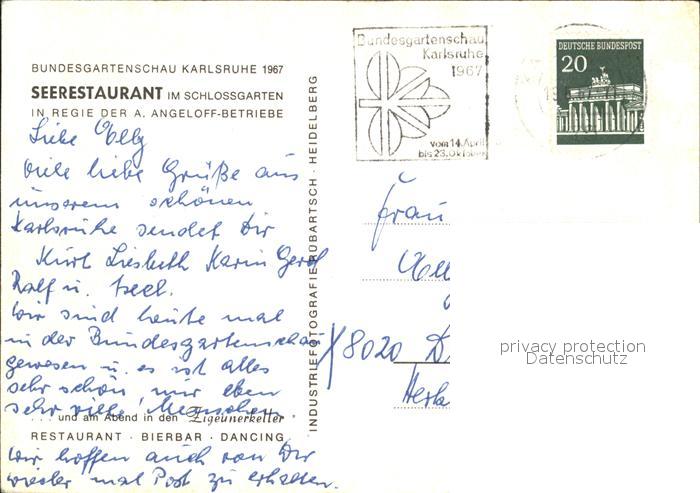 BUNDESGARTENSCHAU KARLSRUHE 1967
SEERESTAURANT IM SCHLOSSGARTEN
IN REGIE DER A. ANGELOFF-BETRIEBE
Liebe Elly
Viele liebe Grüße aus
unserem schönen
Karlsruhe sendet Dir
Kurt Liesbeth Karin Gerd
Ralf u.
Wir sind heute mal
in der Bundesgartenschau
gewesen u. es ist alles
sehr schön nur eben
sehr viele Menschen.
... und am Abend in den Zigeunerkeller
RESTAURANT · BIERBAR · DANCING
Wir hoffen auch von Dir
wieder mal Post zu erhalten.
INDUSTRIEFOTOGRAFIE RUBARTSCH · HEIDELBERG
Bundesgartenschau
Karlsruhe
1967
vom 14. April
bis 23. Oktober
DEUTSCHE BUNDESPOST
20
Frau
Ell
8020 D
privacy protection
Datenschutz